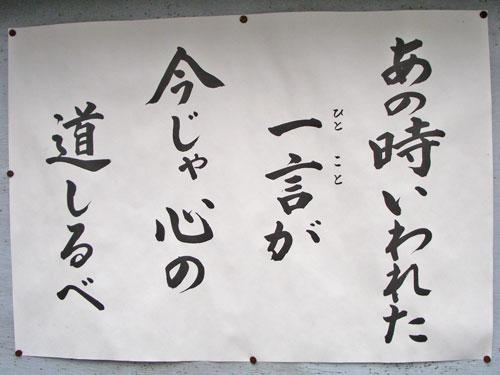 あの時いわれた
一言が
ひとこと
今じゃ心の
道しるべ